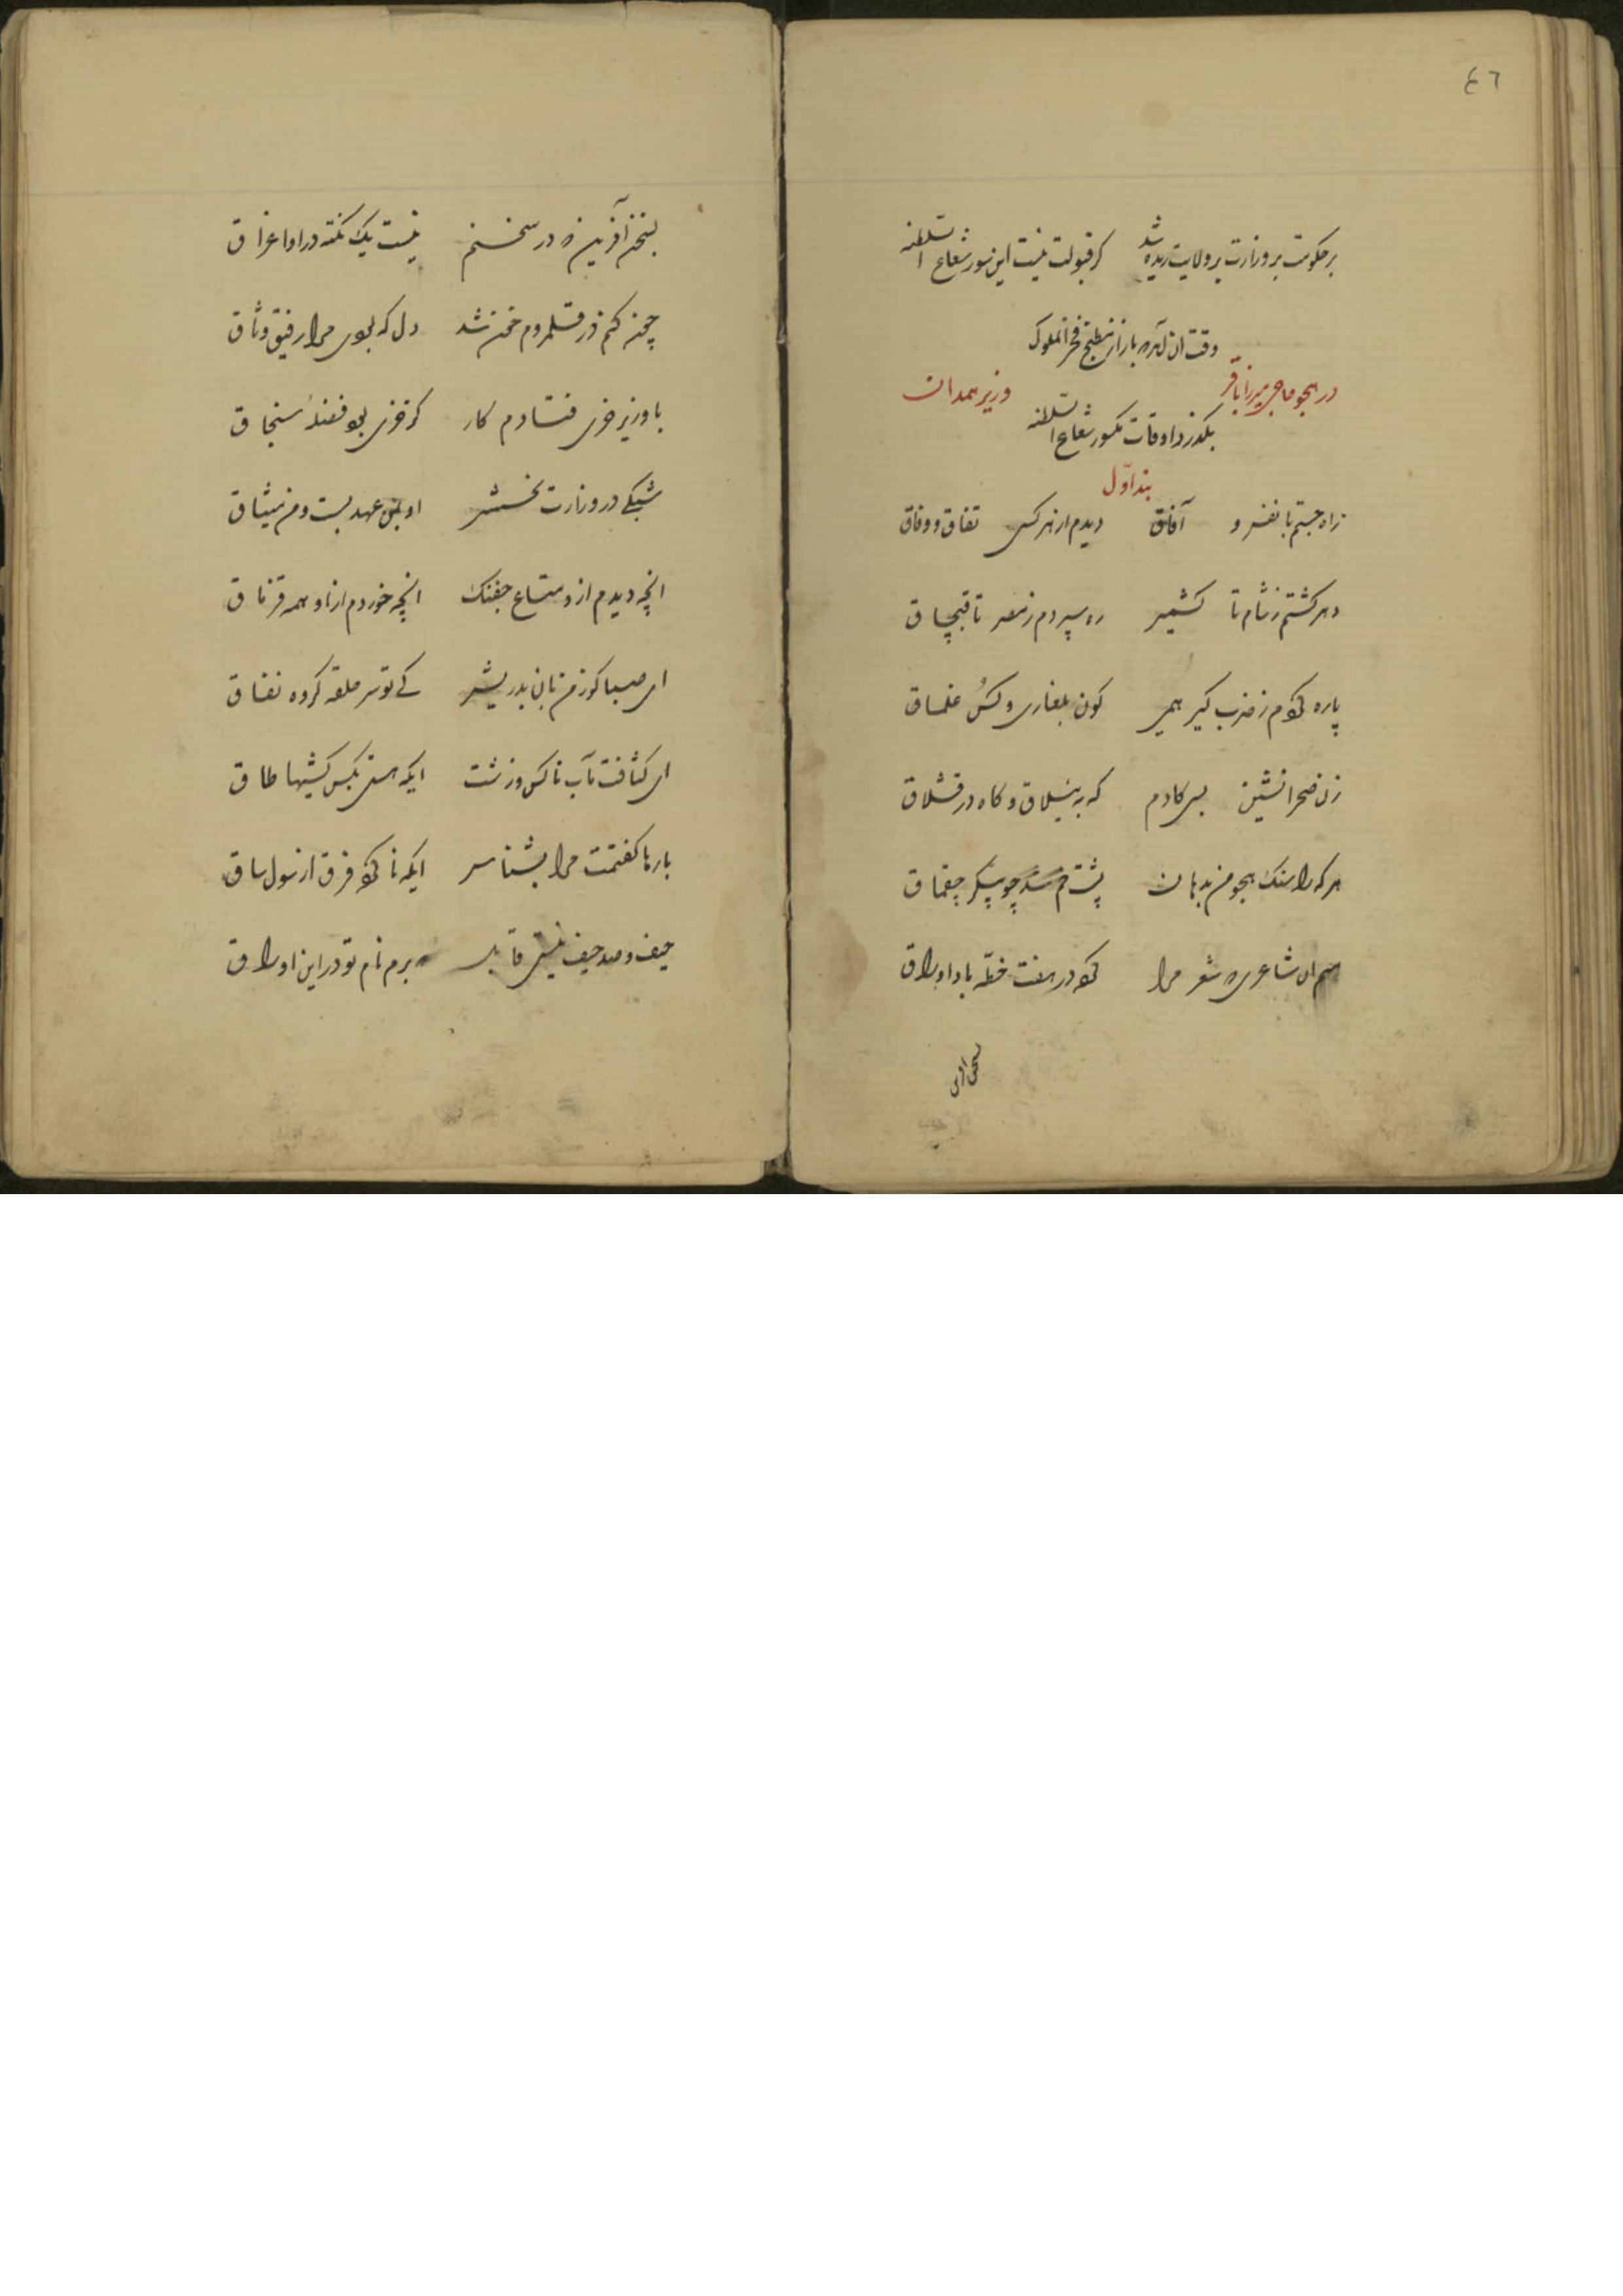 ٤٦
بر حکومت بر وزارت بر ولایت ریده شد کر قبولت نیست این نور شعاع السلطنه
وقت ان آمد باز از نطنج فخر الملوک
در هجو حاجی میرزا باقر وزیر همدان
بکذرد اوقات نکسور شعاع السلطنه
بند اوّل
راه جستم با نفس و آفاق دیدم از هر کس نفاق و وفاق
در کشتم ز شام تا کشمیر ره سپردم ز مصر تا قبچاق
پاره کردم ز ضرب کیر همی کون بلغاری و کس غلماق
زن صحرا نشین بس کادم که به ییلاق و کاه در قشلاق
هر که را سنک هجو من بدهان پشت هم زد چو پیکر چقماق
اسم ان شاعری که شعر مرا کرد در هفت خطّه باد اوراق
نیست یک نکته در او اغراق
چکنم کر در قلمروم خمن نشد دل که بودی مرا رفیق وثاق
با وزیر خری فتادم کار کر خری بود فضلهٔ سنجاق
شبکی در وزارت نخستش او بمن عهد بست و من میثاق
انچه دیدم از او متاع جفنک انچه خوردم از او همه قزناق
ای صبا کو ز من بان بدریش کی تو سر حلقه کروه نفاق
ای کثافت مآب ناکس و زشت ایکه هستی بکس کشیها طاق
بارها کفتمت مرا بشناس ایکه ناکرده فرق از سول ساق
حیف و صد حیف نیستی قابل که برم نام تو در این اوراق